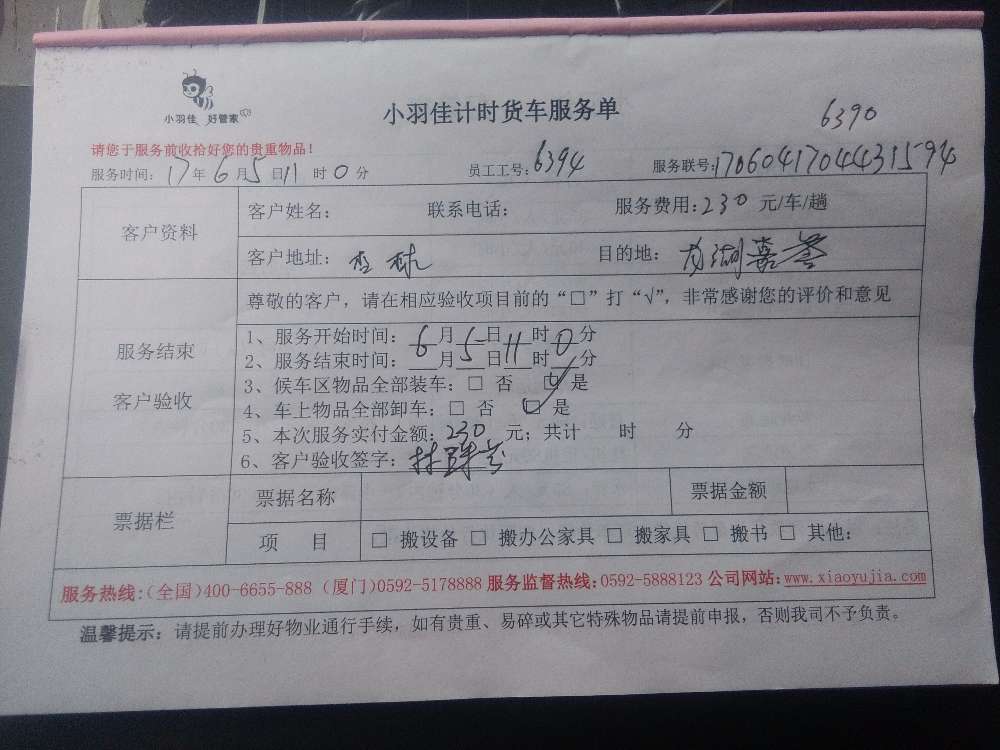 小羽佳 好管家
小羽佳计时货车服务单
6390
请您于服务前收拾好您的贵重物品！
服务时间：17年6月5日11时0分 员工工号：6394 服务联号：170604170443 1594
客户资料
客户姓名： 联系电话： 服务费用：230 元/车/趟
客户地址：杏林 目的地：龙湖嘉誉
服务结束
客户验收
尊敬的客户，请在相应验收项目前的“□”打“√”，非常感谢您的评价和意见
1、服务开始时间：6月5日11时0分
2、服务结束时间：__月__日__时__分
3、候车区物品全部装车：□ 否 □ 是
4、车上物品全部卸车：□ 否 □ 是
5、本次服务实付金额：230 元；共计 时 分
6、客户验收签字：林
票据栏
票据名称 票据金额
项 目 □ 搬设备 □ 搬办公家具 □ 搬家具 □ 搬书 □ 其他：
服务热线：（全国）400-6655-888（厦门）0592-5178888 服务监督热线：0592-5888123 公司网站：www.xiaoyujia.com
温馨提示：请提前办理好物业通行手续，如有贵重、易碎或其它特殊物品请提前申报，否则我司不予负责。